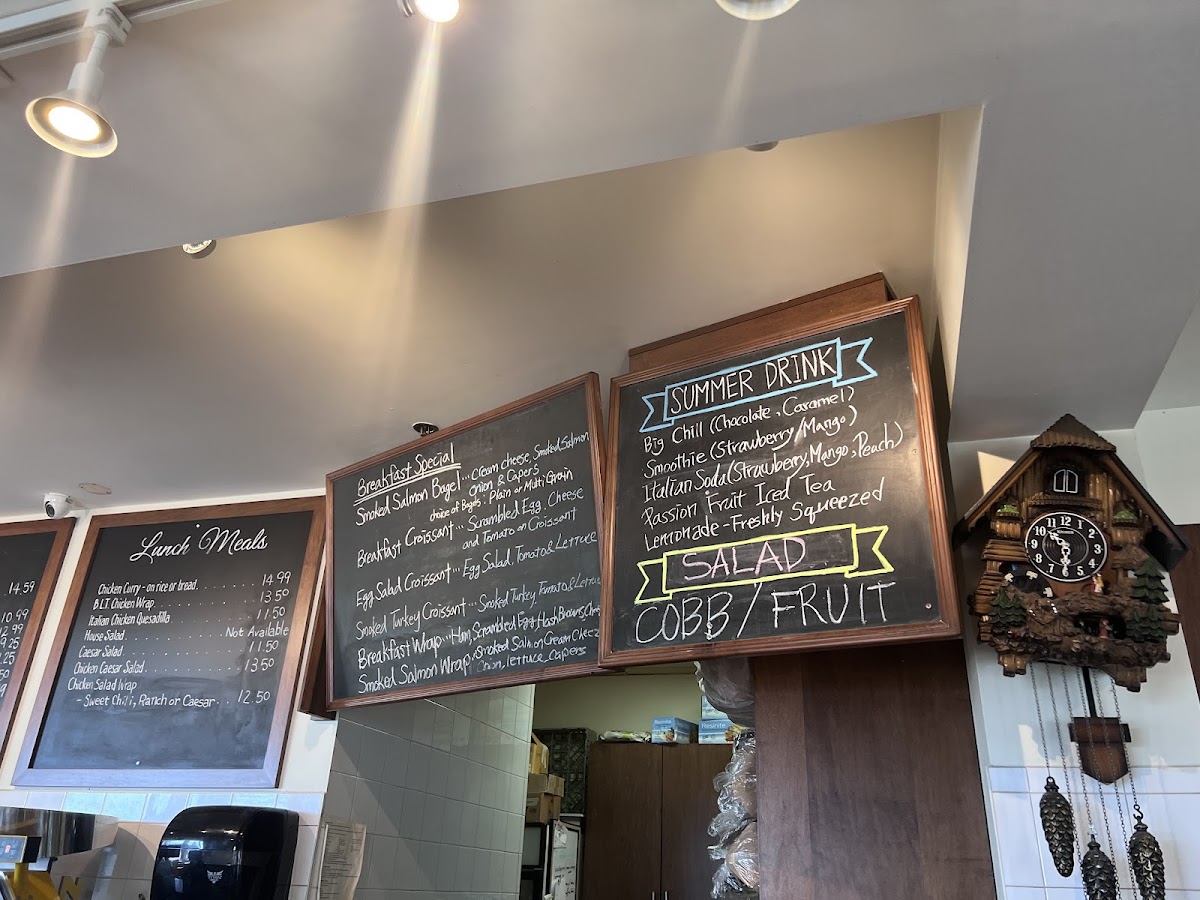 14.59
10.99
12.99
9.25
Lunch Meals
Chicken Curry - on rice or bread. . . . . . . . 14.99
B.L.T. Chicken Wrap . . . . . . . . . . . 13.59
Italian Chicken Quesadilla . . . . . . . . 11.50
House Salad . . . . . . . . . . . Not Available
Caesar Salad . . . . . . . . . . . 11.50
Chicken Caesar Salad . . . . . . . . . . 13.50
Chicken Salad Wrap
- Sweet Chili, Ranch or Caesar . . 12.50
Breakfast Special
Smoked Salmon Bagel... cream cheese, Smoked Salmon
onion & Capers
choice of Bagels: Plain or Multi Grain
Breakfast Croissant... Scrambled Egg, Cheese
and Tomato on Croissant
Egg Salad Croissant... Egg Salad, Tomato & Lettuce
Smoked Turkey Croissant... Smoked Turkey, Tomato & Lettuce
Breakfast Wrap... Ham, Scrambled Egg, Hash Browns,
Smoked Salmon Wrap... Smoked Salmon Cream Cheez
Onion, lettuce, Capers
SUMMER DRINK
Big Chill (Chocolate, Caramel)
Smoothie (Strawberry/Mango)
Italian Soda (Strawberry, Mango, Peach)
Passion Fruit Iced Tea
Lemonade - Freshly Squeezed
SALAD
COBB / FRUIT
12
1
2
3
4
5
6
7
8
9
10
11